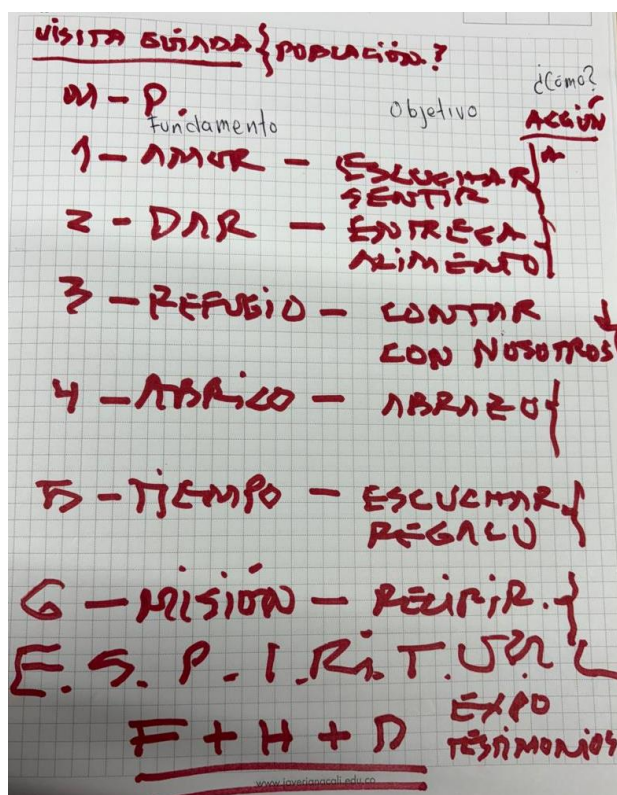 VISITA GUIADA { POBLACIÓN?
M - P.
Fundamento Objetivo ¿Cómo?
ACCIÓN
1 - AMOR - ESCUCHAR
SENTIR
2 - DAR - ENTREGA
ALIMENTO
3 - REFUGIO - CONTAR
CON NOSOTROS
4 - ABRIGO - ABRAZO
5 - TIEMPO - ESCUCHAR
REGALO
6 - MISIÓN - RECIBIR.
E.S.P.I.RI.T.UAL
F + H + D EXPO
TESTIMONIOS
www.javerianacali.edu.co